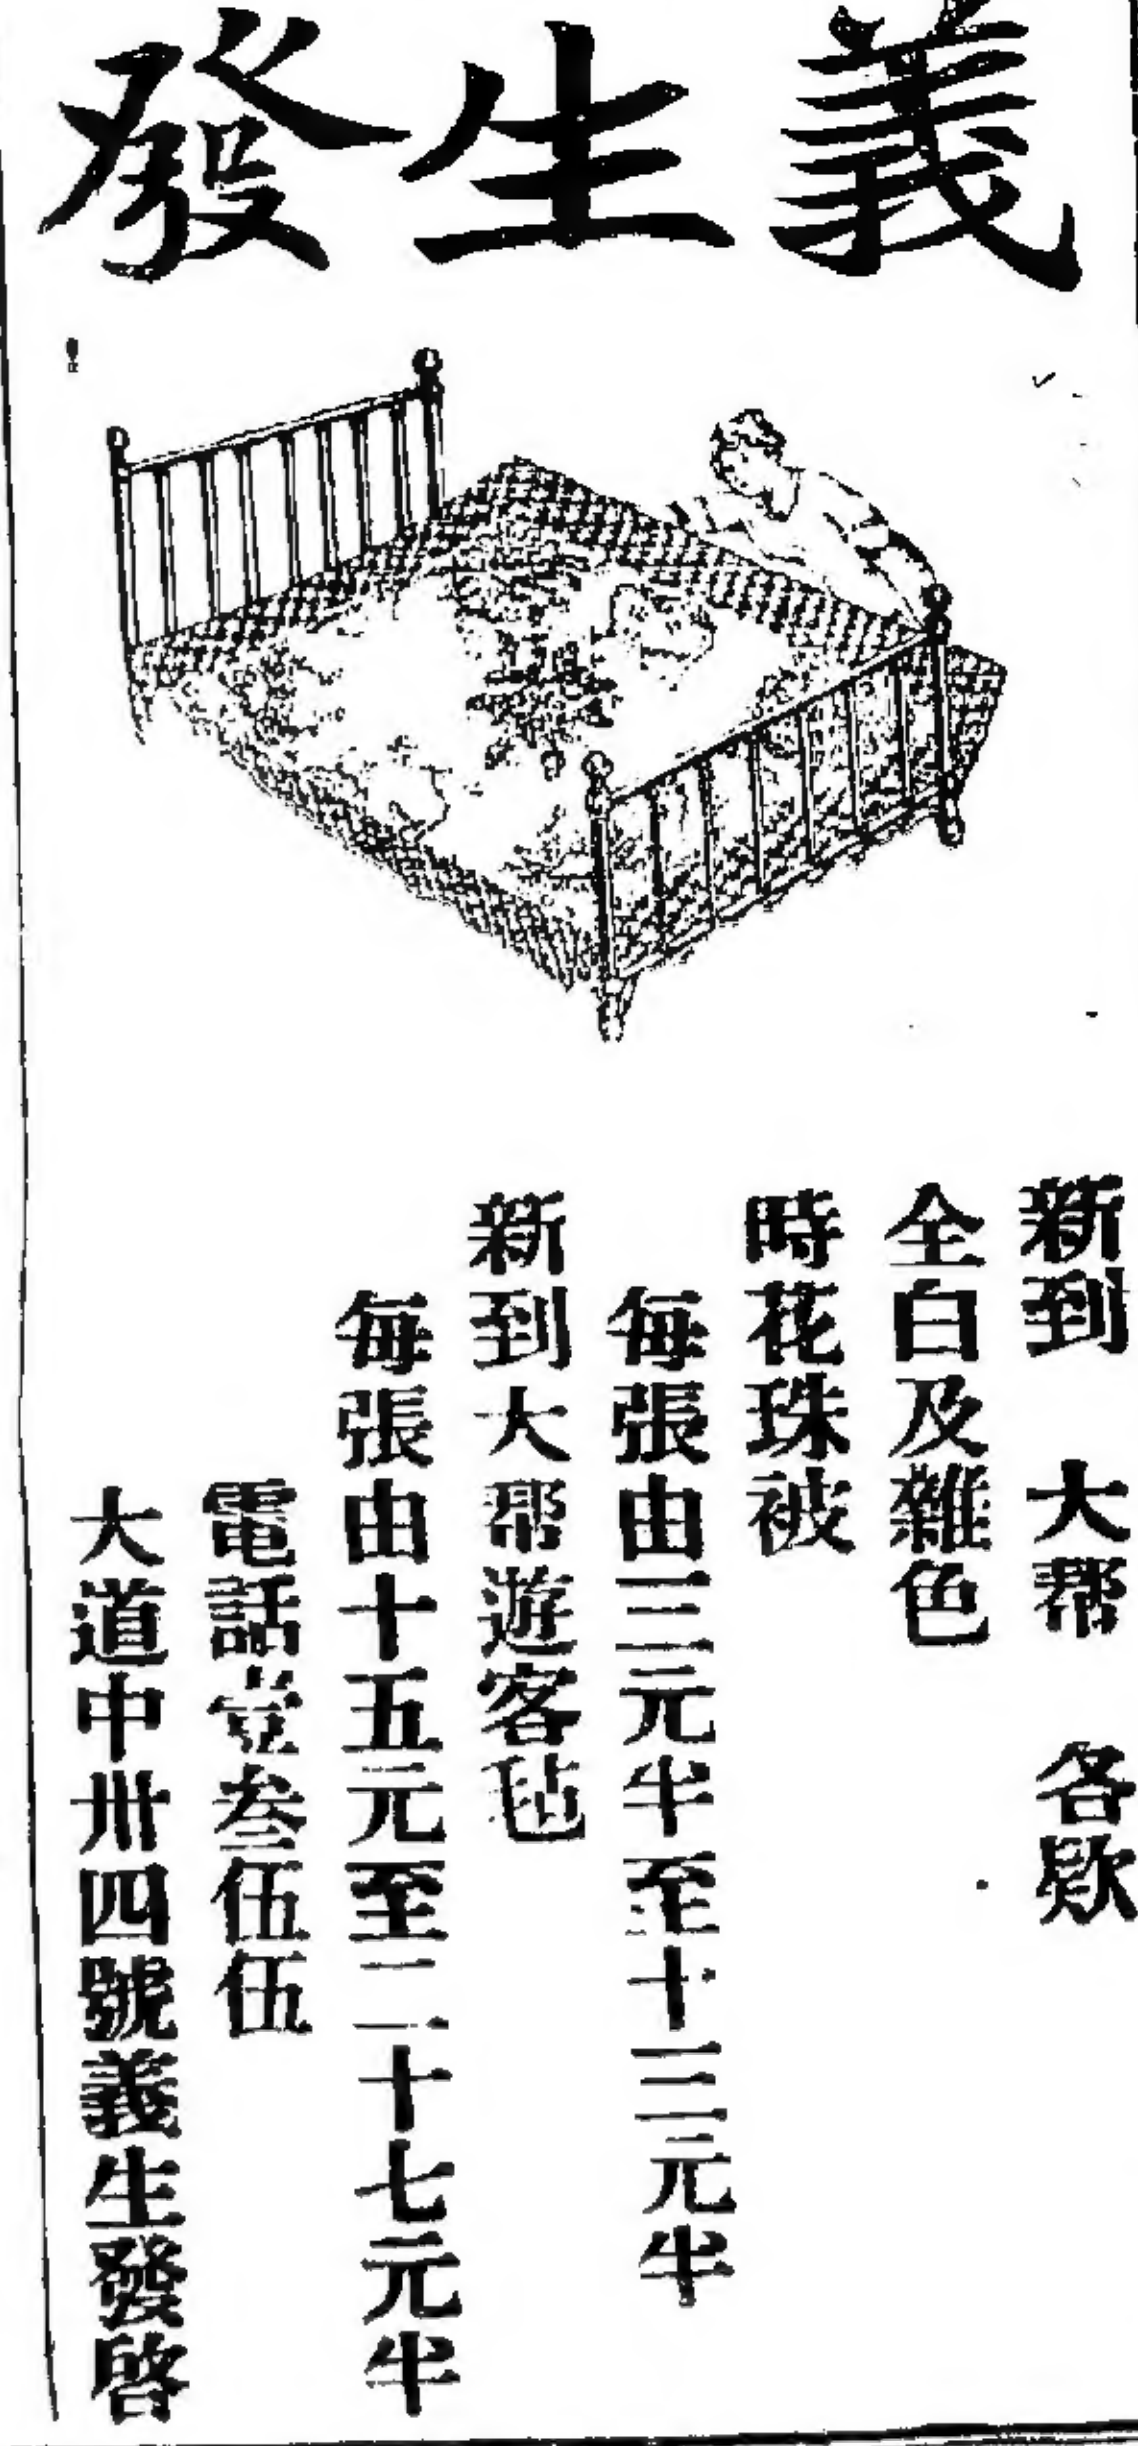 義生發
新到 大帮 各欵
全白及雜色
時花珠被
每張由三元半至十三元半
新到大帮遊客毡
每張由十五元至二十七元半
電話壹叁伍伍
大道中卅四號義生發啓